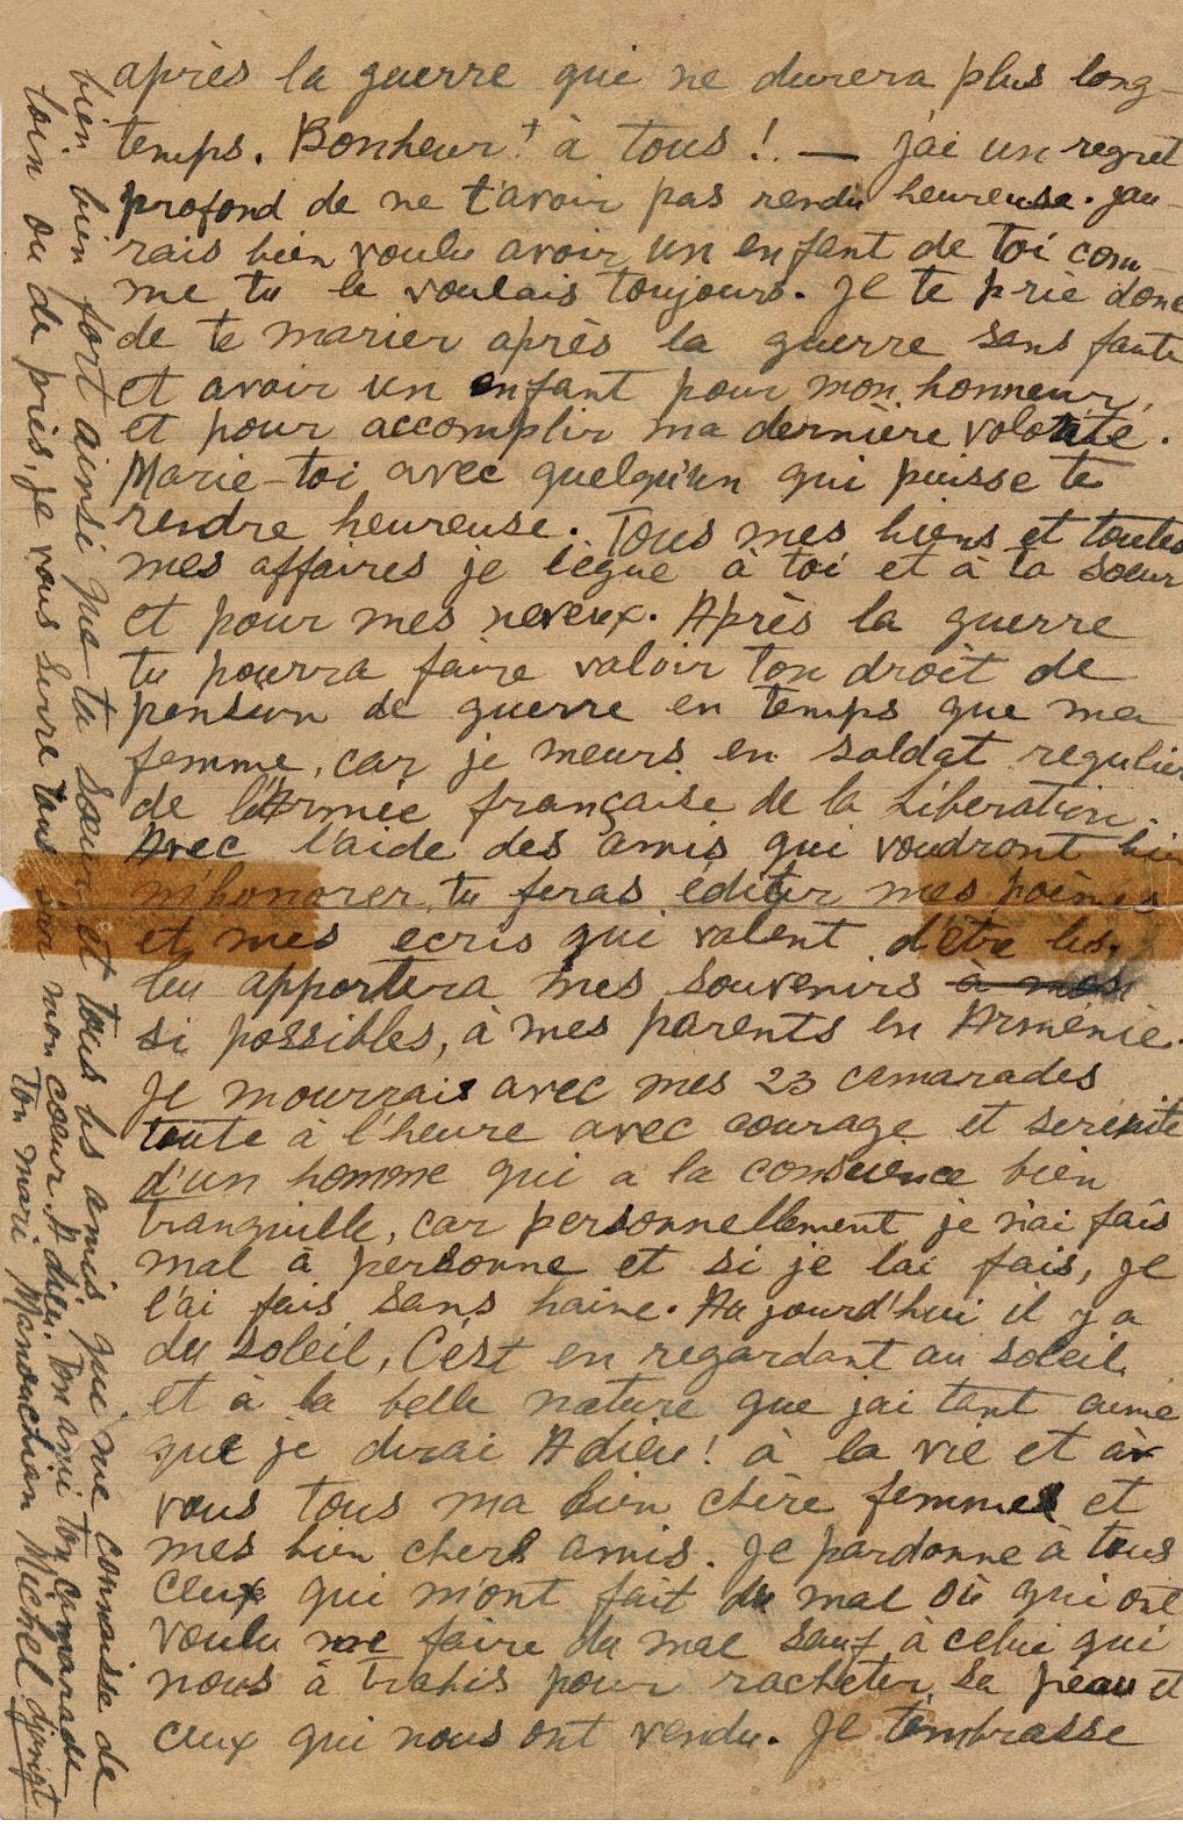 après la guerre qui ne durera plus long-
temps. Bonheur ! à tous ! — j'ai un regret
profond de ne t'avoir pas rendu heureuse. j'au-
rais bien voulu avoir un enfant de toi com-
me tu le voulais toujours. Je te prie donc
de te marier après la guerre sans faute
et avoir un enfant pour mon honneur,
et pour accomplir ma dernière volonté.
Marie-toi avec quelqu'un qui puisse te
rendre heureuse. Tous mes biens et toutes
mes affaires je lègue à toi et à ta sœur
et pour mes neveux. Après la guerre
tu pourra faire valoir ton droit de
pension de guerre en temps que ma
femme, car je meurs en soldat regulier
de l'Armée française de la Liberation.
Avec l'aide des amis qui voudront bien
m'honorer tu feras éditer mes poèmes
et mes ecris qui valent d'être lus.
Tu apportera mes souvenirs à mes
si possibles, à mes parents en Arménie.
Je mourrais avec mes 23 camarades
toute à l'heure avec courage et serénité
d'un homme qui a la conscience bien
tranquille, car personnellement je n'ai fais
mal à personne et si je l'ai fais, je
l'ai fais sans haine. Aujourd'hui il y a
du soleil, C'est en regardant au soleil
et à la belle nature que j'ai tant aimé
que je dirai Adieu ! à la vie et à
vous tous ma bien chère femme et
mes bien chers amis. Je pardonne à tous
ceux qui m'ont fait du mal où qui ont
voulu me faire du mal sauf à celui qui
nous à trahis pour racheter sa peau et
ceux qui nous ont vendu. Je t'embrasse
bien bien fort ainsi que ta sœur et tous les amis qui me connaisse de
loin ou de près, je vous serre tous sur mon cœur. Adieu. Ton ami ton camarade
Ton mari Manouchian Michel djanigt